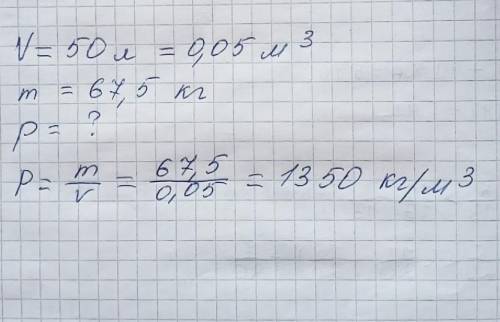 V = 50 л = 0,05 м³
m = 67,5 кг
ρ = ?
ρ = m/V = 67,5/0,05 = 1350 кг/м³